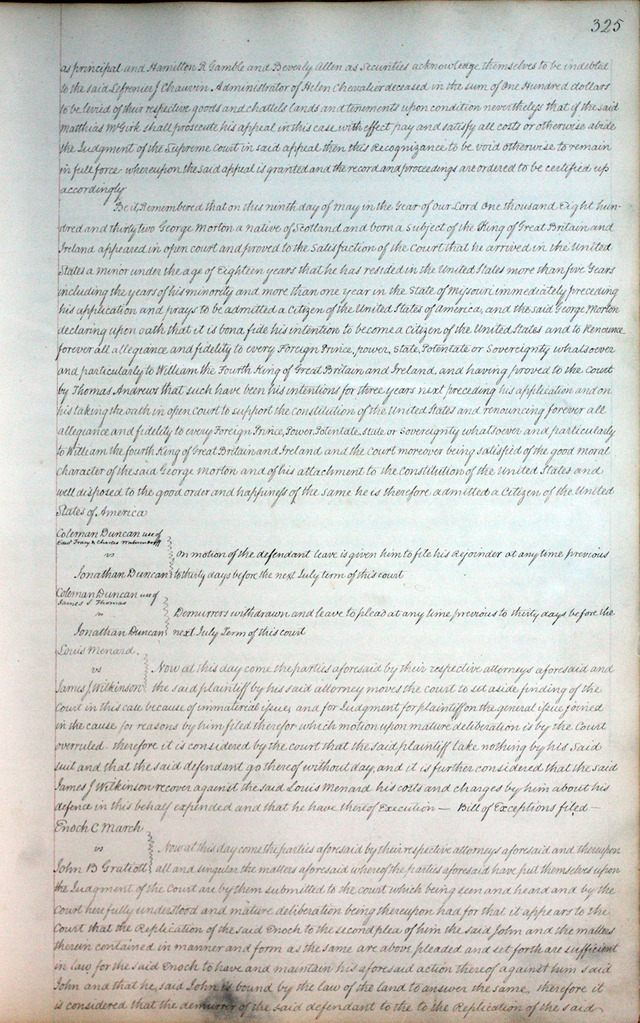 325
as principal and Hamilton R Gamble and Beverly Allen as Securities acknowledge themselves to be indebted
to the said Lefrenier J Chauvin Administrator of Helen Chevalier deceased in the sum of One Hundred dollars
to be levied of their respective goods and chattels lands and tenements upon condition nevertheless that if the said
Matthias McGirk shall prosecute his appeal in this case with effect pay and satisfy all costs or otherwise abide
the Judgment of the Supreme Court in said appeal then this Recognizance to be void otherwise to remain
in full force whereupon the said appeal is granted and the record and proceedings are ordered to be certified up
accordingly
Be it Remembered that on this ninth day of May in the Year of our Lord One thousand Eight hun-
dred and thirty two George Morton a native of Scotland and born a subject of the King of Great Britain and
Ireland appeared in open court and proved to the Satisfaction of the Court that he arrived in the United
States a minor under the age of Eighteen years that he has resided in the United States more than five Years
including the years of his minority and more than one year in the State of Missouri immediately preceding
his application and prays to be admitted a Citizen of the United States of America, and the said George Morton
declaring upon oath that it is bona fide his intention to become a Citizen of the United States and to Renounce
forever all allegiance and fidelity to every Foreign Prince, power, State, Potentate or Sovereignty whatsoever
and particularly to William the Fourth King of Great Britain and Ireland, and having proved to the Court
by Thomas Andrews that such have been his intentions for three years next preceding his application and on
his taking the oath in open court to support the constitution of the United States and renouncing forever all
allegiance and fidelity to every Foreign Prince, Power, Potentate, State or Sovereignty whatsoever and particularly
to William the fourth King of Great Britain and Ireland and the court moreover being satisfied of the good moral
character of the said George Morton and of his attachment to the constitution of the United States and
well disposed to the good order and happiness of the same he is therefore admitted a Citizen of the United
States of America
Coleman Duncan use of
Edwd Tracy & Charles
vs on motion of the defendant leave is given him to file his Rejoinder at any time previous
Jonathan Duncan to thirty days before the next July term of this court
Coleman Duncan use of
James S Thomas
vs Demurrers withdrawn and leave to plead at any time previous to thirty days before the
Jonathan Duncan next July Term of this court
Louis Menard.
vs Now at this day come the parties aforesaid by their respective attorneys aforesaid and
James J Wilkinson the said plaintiff by his said attorney moves the court to set aside finding of the
Court in this case because of immaterial issue, and for Judgment for plaintiff on the general issue joined
in the cause for reasons by him filed therefor which motion upon mature deliberation is by the Court
overruled therefore it is considered by the court that the said plaintiff take nothing by his Said
suit and that the said defendant go thereof without day, and it is further considered that the said
James J Wilkinson recover against the said Louis Menard his costs and charges by him about his
defence in this behalf expended and that he have thereof Execution — Bill of Exceptions filed —
Enoch C March
vs Now at this day come the parties aforesaid by their respective attorneys aforesaid and thereupon
John B Gratiott all and singular the matters aforesaid whereof the parties aforesaid have put themselves upon
the Judgment of the Court are by them submitted to the court which being seen and heard and by the
Court here fully understood and mature deliberation being thereupon had for that it appears to the
Court that the Replication of the said Enoch to the second plea of him the said John and the matters
therein contained in manner and form as the same are above pleaded and set forth are sufficient
in law for the said Enoch to have and maintain his aforesaid action thereof against him said
John and that he, said John is bound by the law of the land to answer the same. therefore it
is considered that the demurrer of the said defendant to the to the Replication of the said